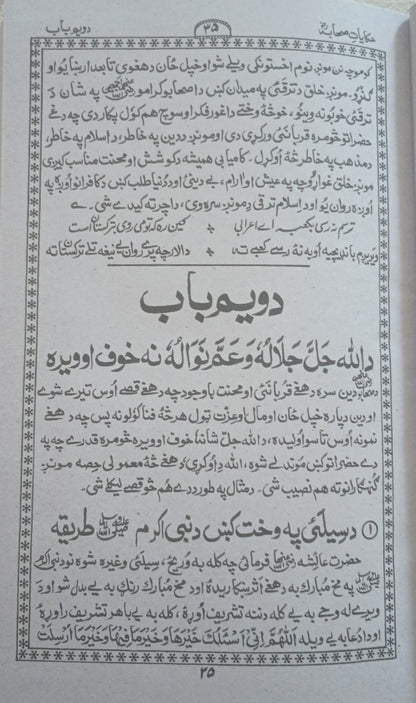 حکایات صحابہؓ ۳۵ دویم باب
کوم چه نن مونږ نوم اخستونکي ويلے شو او خپل ځان دهغوي تابعدار بنايو او
ګڼړو. مونږ خلق د ترقئ په ميدان کښ د صحابو کرامو په شان د
ترقئ خوبونه وينو، خو څه وختے دا غور فکر او سوچ هم کول پکار دي چه دغے
حضراتو څومره قربانئ ورکړي دي او مونږ د دين په خاطر، د اسلام په خاطر،
د مذهب په خاطر څه اوکړل. کاميابي هميشه د کوشش او محنت مناسب کيږي
مونږ خلق غواړو چه په عيش او ارام، بے ديني او د دُنيا طلب کښ د کافرانو اوږه په
اوږه روان يو او اسلام ترقي د مونږ سره وي، دا چرته کيدے شي. ے
ترسم نه رسی بکعبہ اے اعرابی کیں رہ کہ تو می روی بترکستان است
ويريږم بانډيچيه اوبه نه رسے کعبے ته دا لار چه پرے روان يے نيغه تلے ترکستان ته
دويم باب
د الله جَلَّ جَلَالُهٗ وَعَمَّ نَوَالُهٗ نه خوف او ويره
د دين سره دهغے قربانئ او محنت باوجود چه دهغے قصے اُوس تيرے شوے
او د دين دپاره خپل ځان او مال او عزت ټول هرڅه فنا کؤلو نه پس چه دهغے
نمونه اُوس تاسو اوليده، د الله جلّ شانهٗ خوف او ويره څومره قدرے چه په
دے حضراتو کښ موندلے شوه، الله دِ اوکړي دهغے څهٔ معمولي حصه مونږ
ګنهګارانو ته هم نصيب شي. د مثال په طور دے هم څو قصے ليکلے شي.
① د سيلئ په وخت کښ د نبي اکرم ﷺ طريقه
حضرت عائشه رضی اللہ عنہا فرمائي چه کله به وريځ، سيلئ وغيره شوه نو د نبي اکرم
ﷺ په مخ مُبارک به دهغے اثر ښکاريدهٔ او د مخ مبارک رنګ به يے بدل شو او د
ويرے له وجے به يے کله دننه تشريف اُوړهٔ، کله به يے بهر تشريف راوړهٔ
او دا دُعا به يے ويله اَللّٰهُمَّ اِنِّيْ اَسْئَلُكَ خَيْرَهَا وَخَيْرَ مَا فِيْهَا وَخَيْرَ مَا اُرْسِلَتْ
۳۵